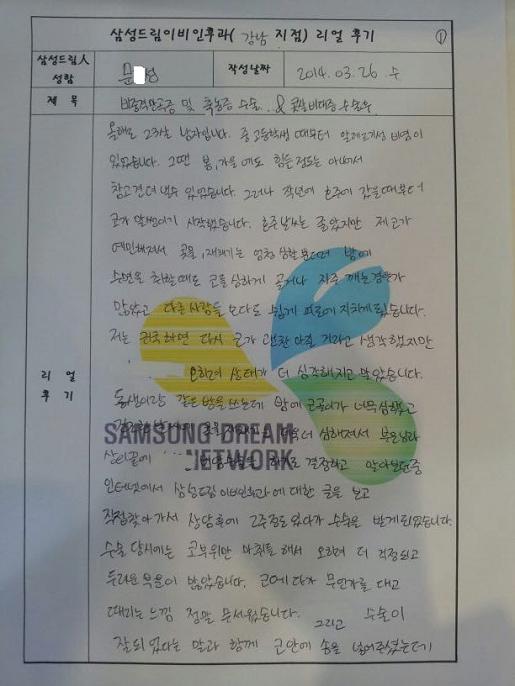 삼성드림이비인후과( 강남 지점) 리얼 후기 ①
삼성드림人 성함 문 성 작성날짜 2014. 03. 26 수
제 목 비중격만곡증 및 축농증 수술.. & 콧살비대증 수술후
올해로 23살 남자입니다. 중 고등학생 때부터 알레르기성 비염이
있었습니다. 그땐 봄, 가을 에도 힘든정도는 아니여서
참고 견뎌 낼수 있었습니다. 그러나 작년에 호주에 갔을때부터
코가 말썽이기 시작했습니다. 호주날씨는 좋았지만 제코가
예민해져서 콧물, 재채기는 엄청 심할 뿐더러 밤에
수면을 취할때도 코를 심하게 골거나 자주 깨는경우가
많았고 다른 사람들 보다도 쉽게 피로에 지치게 됬습니다.
저는 귀국하면 다시 코가 괜찮아질 거라고 생각했지만
오히려 상태가 더 심각해지고 말았습니다.
동생이랑 같은방을 쓰는데 밤에 코골이가 너무심했고
더욱더 심해져서 부모님과
상의끝에 ... 하기로 결정하고 알아보던중
인터넷에서 삼성드림이비인후과에 대한 글을 보고
직접찾아가서 상담후에 2주정도있다가 수술을 받게되었습니다.
수술 당시에는 코부위만 마취를 해서 오히려 더 걱정되고
두려운 마음이 많았습니다. 코에다가 무언가를 대고
때리는 느낌 정말 무서웠습니다. 그리고 수술이
잘되었다는 말과 함께 코안에 솜을 넣어주셨는데
리 얼
후 기
SAMSUNG DREAM
NETWORK